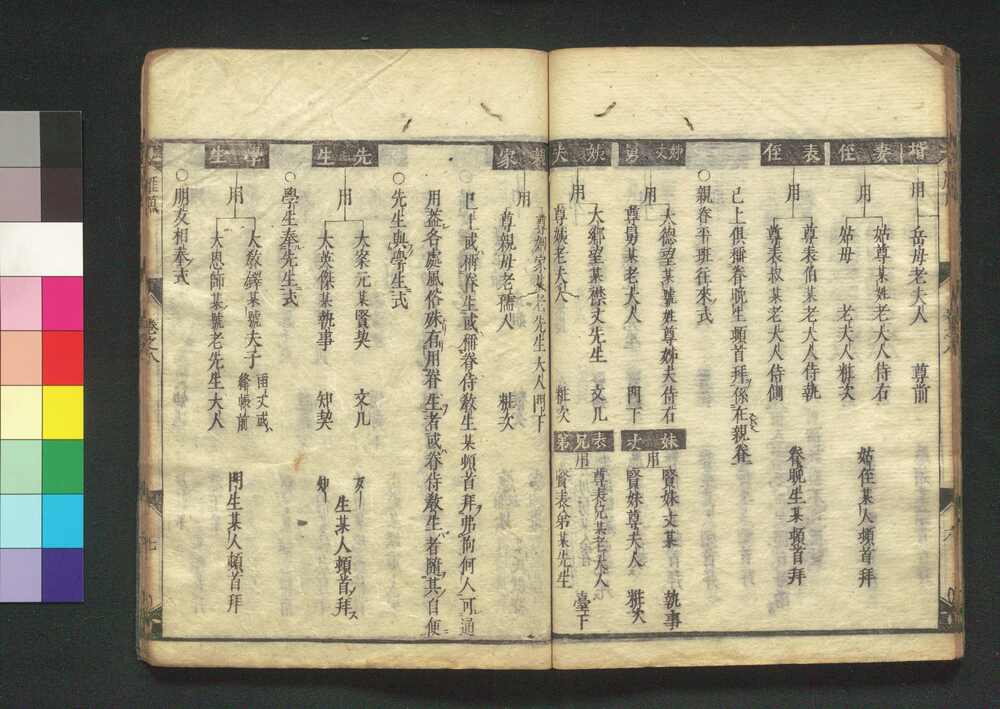 壻
用
岳母老大人 尊前
妻侄
用
姑尊某姓老大人侍右
姑母 老大人粧次
姑侄某人頓首拜
表侄
用
尊表伯某老大人侍執
尊表叔某老大人侍側
眷晚生某人頓首拜
已上俱稱眷晚生頓首拜係在親眷
○親眷平班往來式
用
大德望某號姓尊姊夫侍右
尊舅某老大人 門下
妹丈
用
賢妹丈某 執事
賢妹尊夫人 粧次
用
大鄉望某襟丈先生 文几
尊姨老夫人 粧次
表兄弟
用
尊表兄某老大人
賢表弟某先生 臺下
家
用
尊親家某老先生大人門下
尊親母老孺人 粧次
○已上或稱眷生或稱眷侍教生某頓首拜弗拘何人可通
用蓋各處風俗殊有用眷生者或眷侍教生者隨其自便
○先生與學生式
先生
用
大案元某賢契 文几
大英傑某執事 知契
友
知
生某人頓首拜
○學生奉先生式
學生
用
大教鐸某號夫子 函丈或絳帳前
大恩師某號老先生大人
門生某人頓首拜
○朋友相奉式
卷之八
七